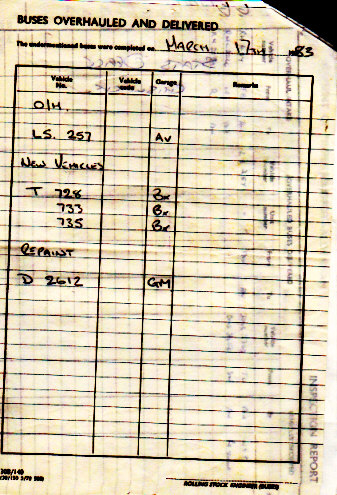 BUSES OVERHAULED AND DELIVERED
The undermentioned buses were completed on MARCH 17TH 1983
Vehicle No. Vehicle code Garage Remarks
O/H.
LS. 257 AV
NEW VEHICLES
T 728 Bx
733 Bx
735 Bx
REPAINT
D 2612 GM
INSPECTION REPORT
ROLLING STOCK ENGINEER (BUSES)